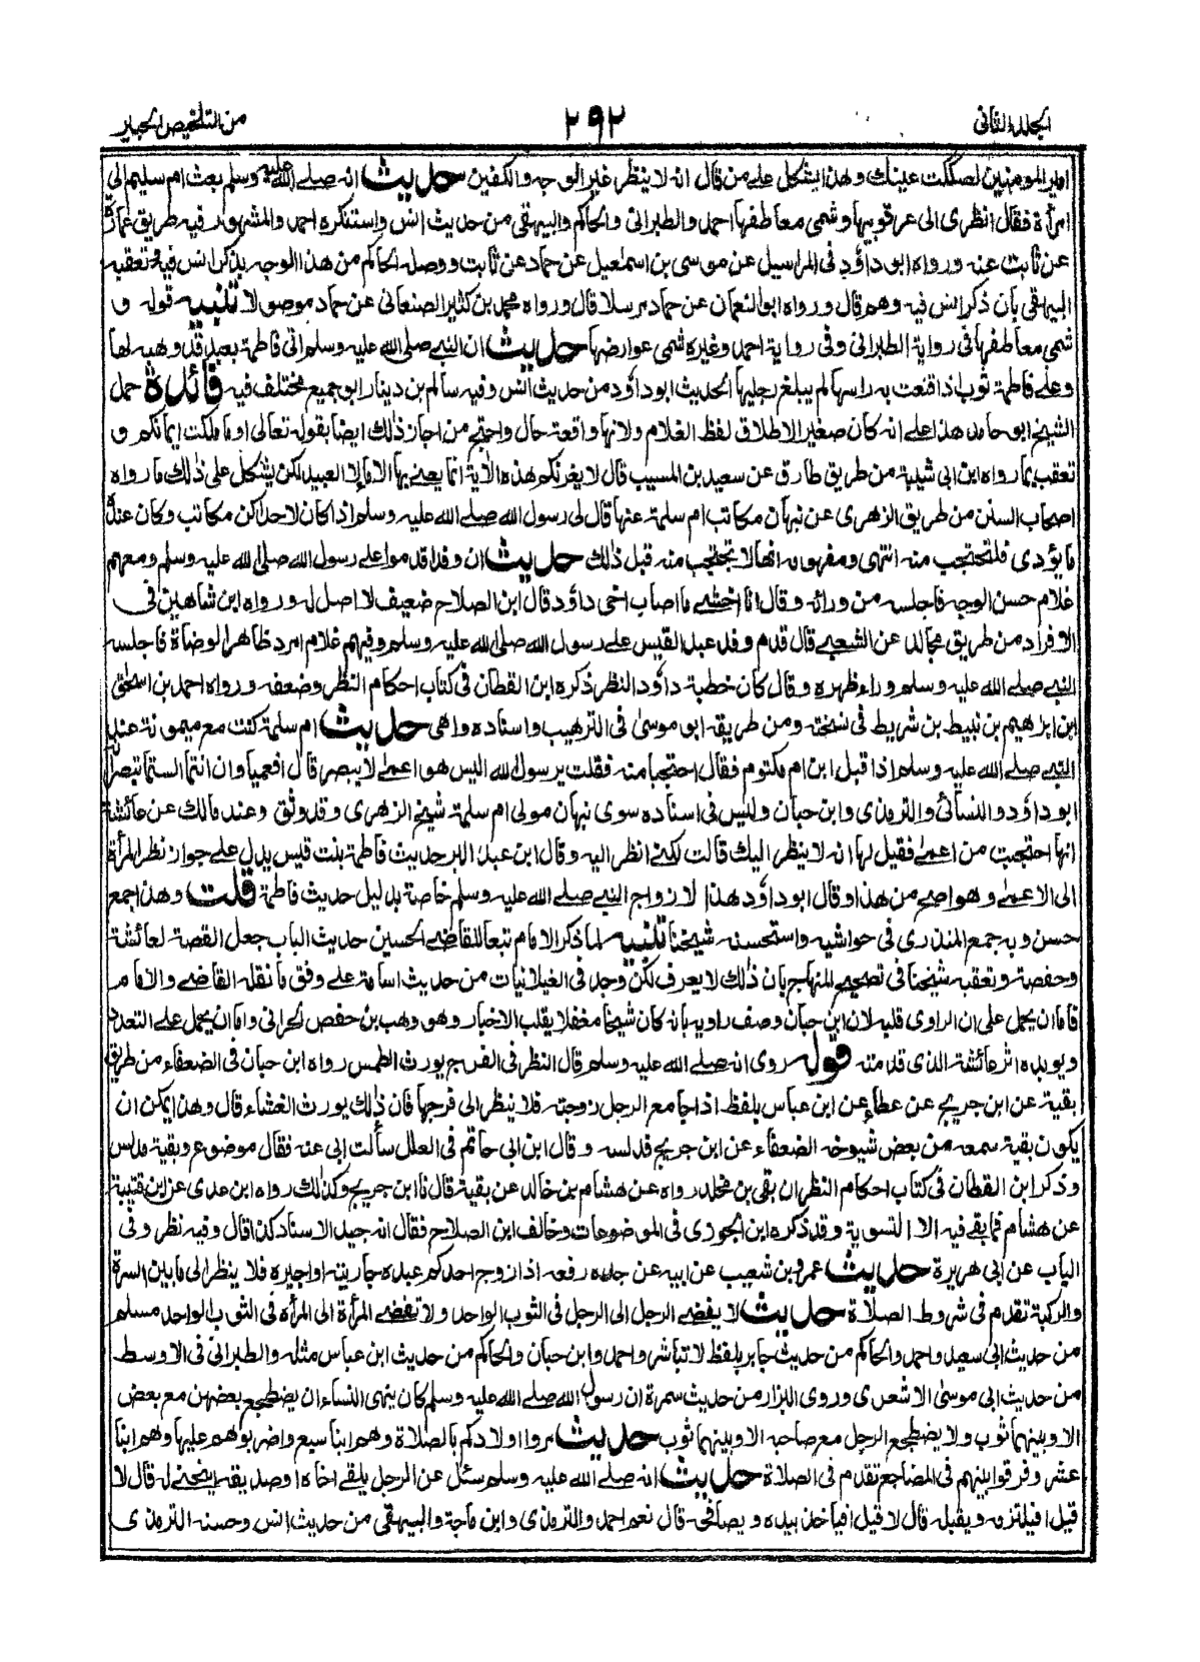 الجلد الثانى ٢٩٢ من التلخيص الحبير
امير المومنين لصككت عينك وهذا يشكل على من قال انه لا ينظر غير الوجه والكفين حديث انه صلى الله عليه وسلم بعث ام سليم الى
امرأة فقال انظرى الى عرقوبيها وشمى معاطفها احمد والطبرانى والحاكم والبيهقى من حديث انس واستنكره احمد والمشهور فيه طريق عمارة
عن ثابت عنه ورواه ابو داؤد فى المراسيل عن موسى بن اسمعيل عن حماد عن ثابت ووصله الحاكم من هذا الوجه بذكر انس فيه وتعقبه
البيهقى بان ذكر انس فيه وهم قال ورواه ابو النعمان عن حماد مرسلا قال ورواه محمد بن كثير الصنعانى عن حماد موصولا تنبيه قوله و
شمى معاطفها فى رواية الطبرانى وفى رواية احمد وغيره شمى عوارضها حديث ان النبى صلى الله عليه وسلم اتى فاطمة بعبد قد وهبه لها
وعلى فاطمة ثوب اذا قنعت به راسها لم يبلغ رجليها الحديث ابو داؤد من حديث انس وفيه سالم بن دينار ابو جميع مختلف فيه فائدة حمل
الشيخ ابو حامد هذا على انه كان صغيرا لاطلاق لفظ الغلام ولانها واقعة حال واحتج من اجاز ذلك ايضا بقوله تعالى او ما ملكت ايمانكم و
تعقب بما رواه ابن ابى شيبة من طريق طارق عن سعيد بن المسيب قال لا يغرنكم هذه الأية انما يعنى بها الاماء لا العبيد لكن يشكل على ذلك ما رواه
اصحاب السنن من طريق الزهرى عن نبهان مكاتب ام سلمة عنها قال لى رسول الله صلى الله عليه وسلم اذا كان لاحداكن مكاتب وكان عنده
ما يؤدى فلتحتجب منه انتهى ومفهومه انها لا تحتجب منه قبل ذلك حديث ان وفدا قدموا على رسول الله صلى الله عليه وسلم ومعهم
غلام حسن الوجه فاجلسه من ورائه وقال انا اخشى ما اصاب اخى داؤد قال ابن الصلاح ضعيف لا اصل له ورواه ابن شاهين فى
الافراد من طريق مجالد عن الشعبى قال قدم وفد عبد القيس على رسول الله صلى الله عليه وسلم وفيهم غلام امرد ظاهر الوضاءة فاجلسه
النبى صلى الله عليه وسلم وراء ظهره وقال كان خطية داؤد النظر ذكره ابن القطان فى كتاب احكام النظر وضعفه ورواه احمد بن اسحق
ابن ابرهيم بن نبيط بن شريط فى نسخته ومن طريقه ابو موسى فى الترهيب واسناده واهى حديث ام سلمة كنت مع ميمونة عند
النبى صلى الله عليه وسلم اذا قبل ابن ام مكتوم فقال احتجبا منه فقلت يرسول الله اليس هو اعمى لا يبصر قال افعمياوان انتما الستما تبصرانه
ابو داؤد والنسائى والترمذى وابن حبان وليس فى اسناده سوى نبهان مولى ام سلمة شيخ الزهرى وقد وثق وعند مالك عن عائشة
انها احتجبت من اعمى فقيل لها انه لا ينظر اليك قالت لكنى انظر اليه وقال ابن عبد البر حديث فاطمة بنت قيس يدل على جواز نظر المرأة
الى الاعمى وهو اصح من هذا وقال ابو داؤد هذا لازواج النبى صلى الله عليه وسلم خاصة بدليل حديث فاطمة قلت وهذا جمع
حسن وبه جمع المنذرى فى حواشيه واستحسنه شيخنا تنبيه لما ذكر الامام تبعا للقاضى الحسين حديث الباب جعل القصة لعائشة
وحفصة وتعقبه شيخنا فى تصحيح المنهاج بان ذلك لا يعرف لكن وجد فى الغيلانيات من حديث اسامة على وفق ما نقله القاضى والامام
فاما ان يحمل على ان الراوى قلبه لان ابن حبان وصف راويه بانه كان شيخا مغفلا يقلب الاخبار وهو وهب بن حفص الحرانى واما ان يحمل على التعدد
ويويده اثر عائشة الذى قدمته قوله روى انه صلى الله عليه وسلم قال النظر فى الفرج يورث الطمس رواه ابن حبان فى الضعفاء من طريق
بقية عن ابن جريج عن عطاء عن ابن عباس بلفظ اذا جامع الرجل زوجته فلا ينظر الى فرجها فان ذلك يورث الغشاء قال وهذا يمكن ان
يكون بقية سمعه من بعض شيوخه الضعفاء عن ابن جريج فدلسه وقال ابن ابى حاتم فى العلل سألت ابى عنه فقال موضوع وبقية مدلس
وذكر ابن القطان فى كتاب احكام النظر ان بقى بن مخلد رواه عن هشام بن خالد عن بقية قال نا ابن جريج وكذلك رواه ابن عدى عن ابن قتيبة
عن هشام فما بقى فيه الا التسوية وقد ذكره ابن الجوزى فى الموضوعات وخالف ابن الصلاح فقال انه جيد الاسناد كذا قال وفيه نظر وفى
الباب عن ابى هريرة حديث عمرو بن شعيب عن ابيه عن جده رفعه اذا زوج احدكم عبده جاريته او اجيره فلا ينظر الى ما بين السرة
والركبة تقدم فى شروط الصلاة حديث لا يفضى الرجل الى الرجل فى الثوب الواحد ولا تفضى المرأة الى المرأة فى الثوب الواحد مسلم
من حديث ابى سعيد واحمد والحاكم من حديث جابر بلفظ لا تباشر واحمد وابن حبان والحاكم من حديث ابن عباس مثله والطبرانى فى الاوسط
من حديث ابى موسى الاشعرى وروى البزار من حديث سمرة ان رسول الله صلى الله عليه وسلم كان ينهى النساء ان يضطجع بعضهن مع بعض
الا وبينهما ثوب ولا يضطجع الرجل مع صاحبه الا وبينهما ثوب حديث مروا اولادكم بالصلاة وهم ابنا سبع واضربوهم عليها وهم ابنا
عشر وفرقوا بينهم فى المضاجع تقدم فى الصلاة حديث انه صلى الله عليه وسلم سئل عن الرجل يلقى اخاه او صديقه اينحنى له قال لا
قيل افيلتزمه ويقبله قال لا قيل افياخذ بيده ويصافحه قال نعم احمد والترمذى وابن ماجة والبيهقى من حديث انس وحسنه الترمذى